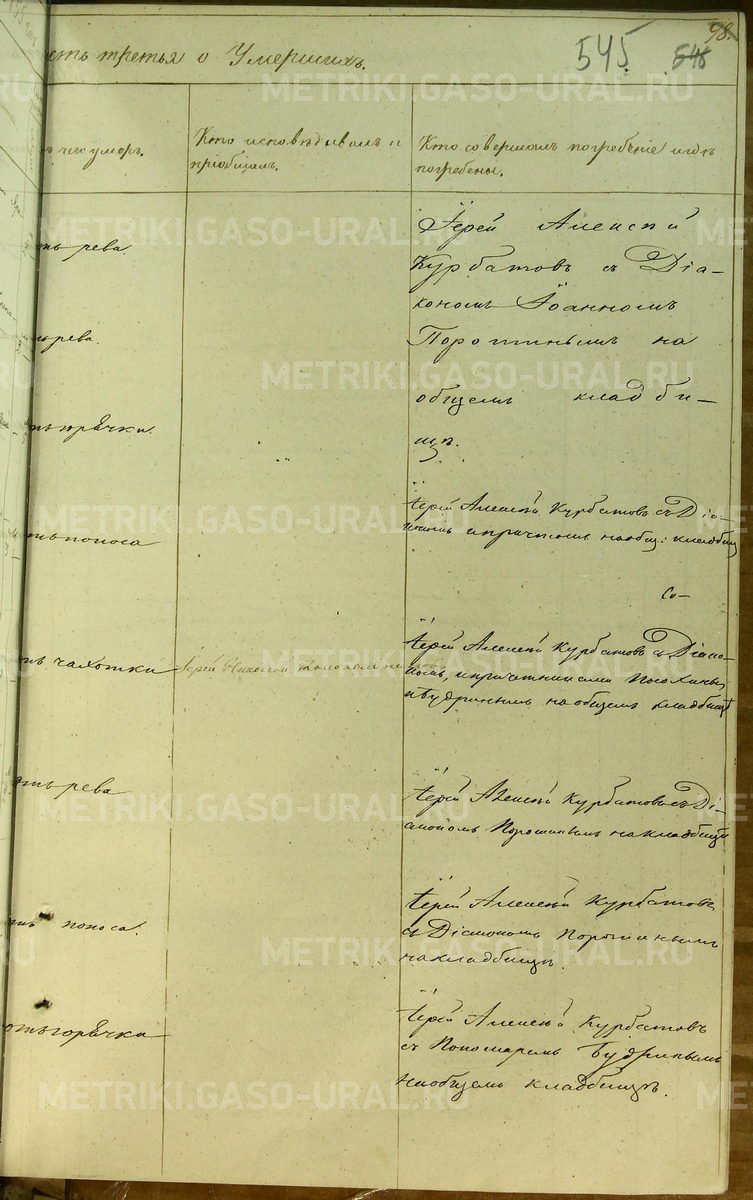 98.
545 546
сть третья о Умершихъ.
ъ чего умеръ.
Кто исповѣдывалъ и
пріобщалъ.
Кто совершалъ погребеніе и гдѣ
погребены.
тъ рева.
Іерей Алексѣй
Курбатовъ съ Діа-
кономъ Іоанномъ
Поротинымъ на
общемъ кладби-
щѣ.
ъ рева.
тъ горячки.
тъ поноса
Іерей Алексѣй Курбатовъ съ Діа-
кономъ и причтомъ на общ: кладбищ
Со-
отъ чахотки
Іерей Николай
Іерей Алексѣй Курбатовъ съ Діако-
номъ, и причетниками
и Будринымъ на общемъ кладбищѣ
отъ рева
Іерей Алексѣй Курбатовъ съ Ді-
акономъ на кладбищѣ
тъ поноса.
Іерей Алексѣй Курбатовъ
съ Діакономъ Поротинымъ
на кладбищѣ.
отъ горячки
Іерей Алексѣй Курбатовъ
съ Пономаремъ Будринымъ
на общемъ кладбищѣ.
METRIKI.GASO-URAL.RU